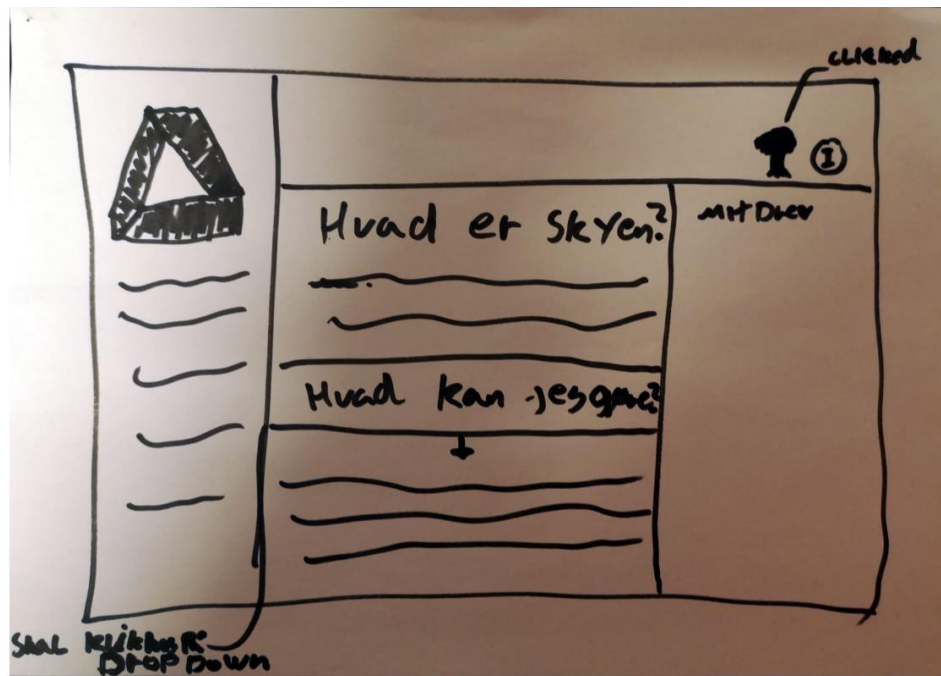 clicked
I
Hvad er Skyen?
Mit Drev
Hvad kan jeg gøre?
Skal klikkes på
DROP DOWN